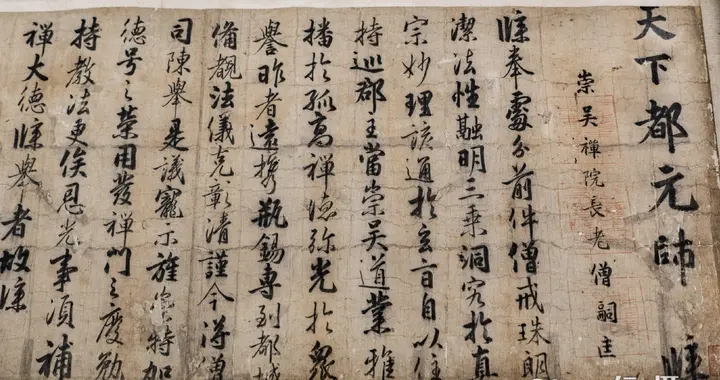 天下都元帥　牒
崇吴禪院長老僧嗣匡
牒奉處分前件僧戒珠朗
潔法性融明三乗洞究扵真
宗妙理該通扵玄旨自以住
持巡郡主當崇吴道業雅
播扵孤高禪德弥光扵衆
譽昨者遠携瓶錫專到都城
備觀法儀克彰清謹今淂僧
司陳舉是議寵示旌賞特加
德号之榮用發禪門之慶勉
持教法更俟恩光事須補
禪大德牒舉者故牒